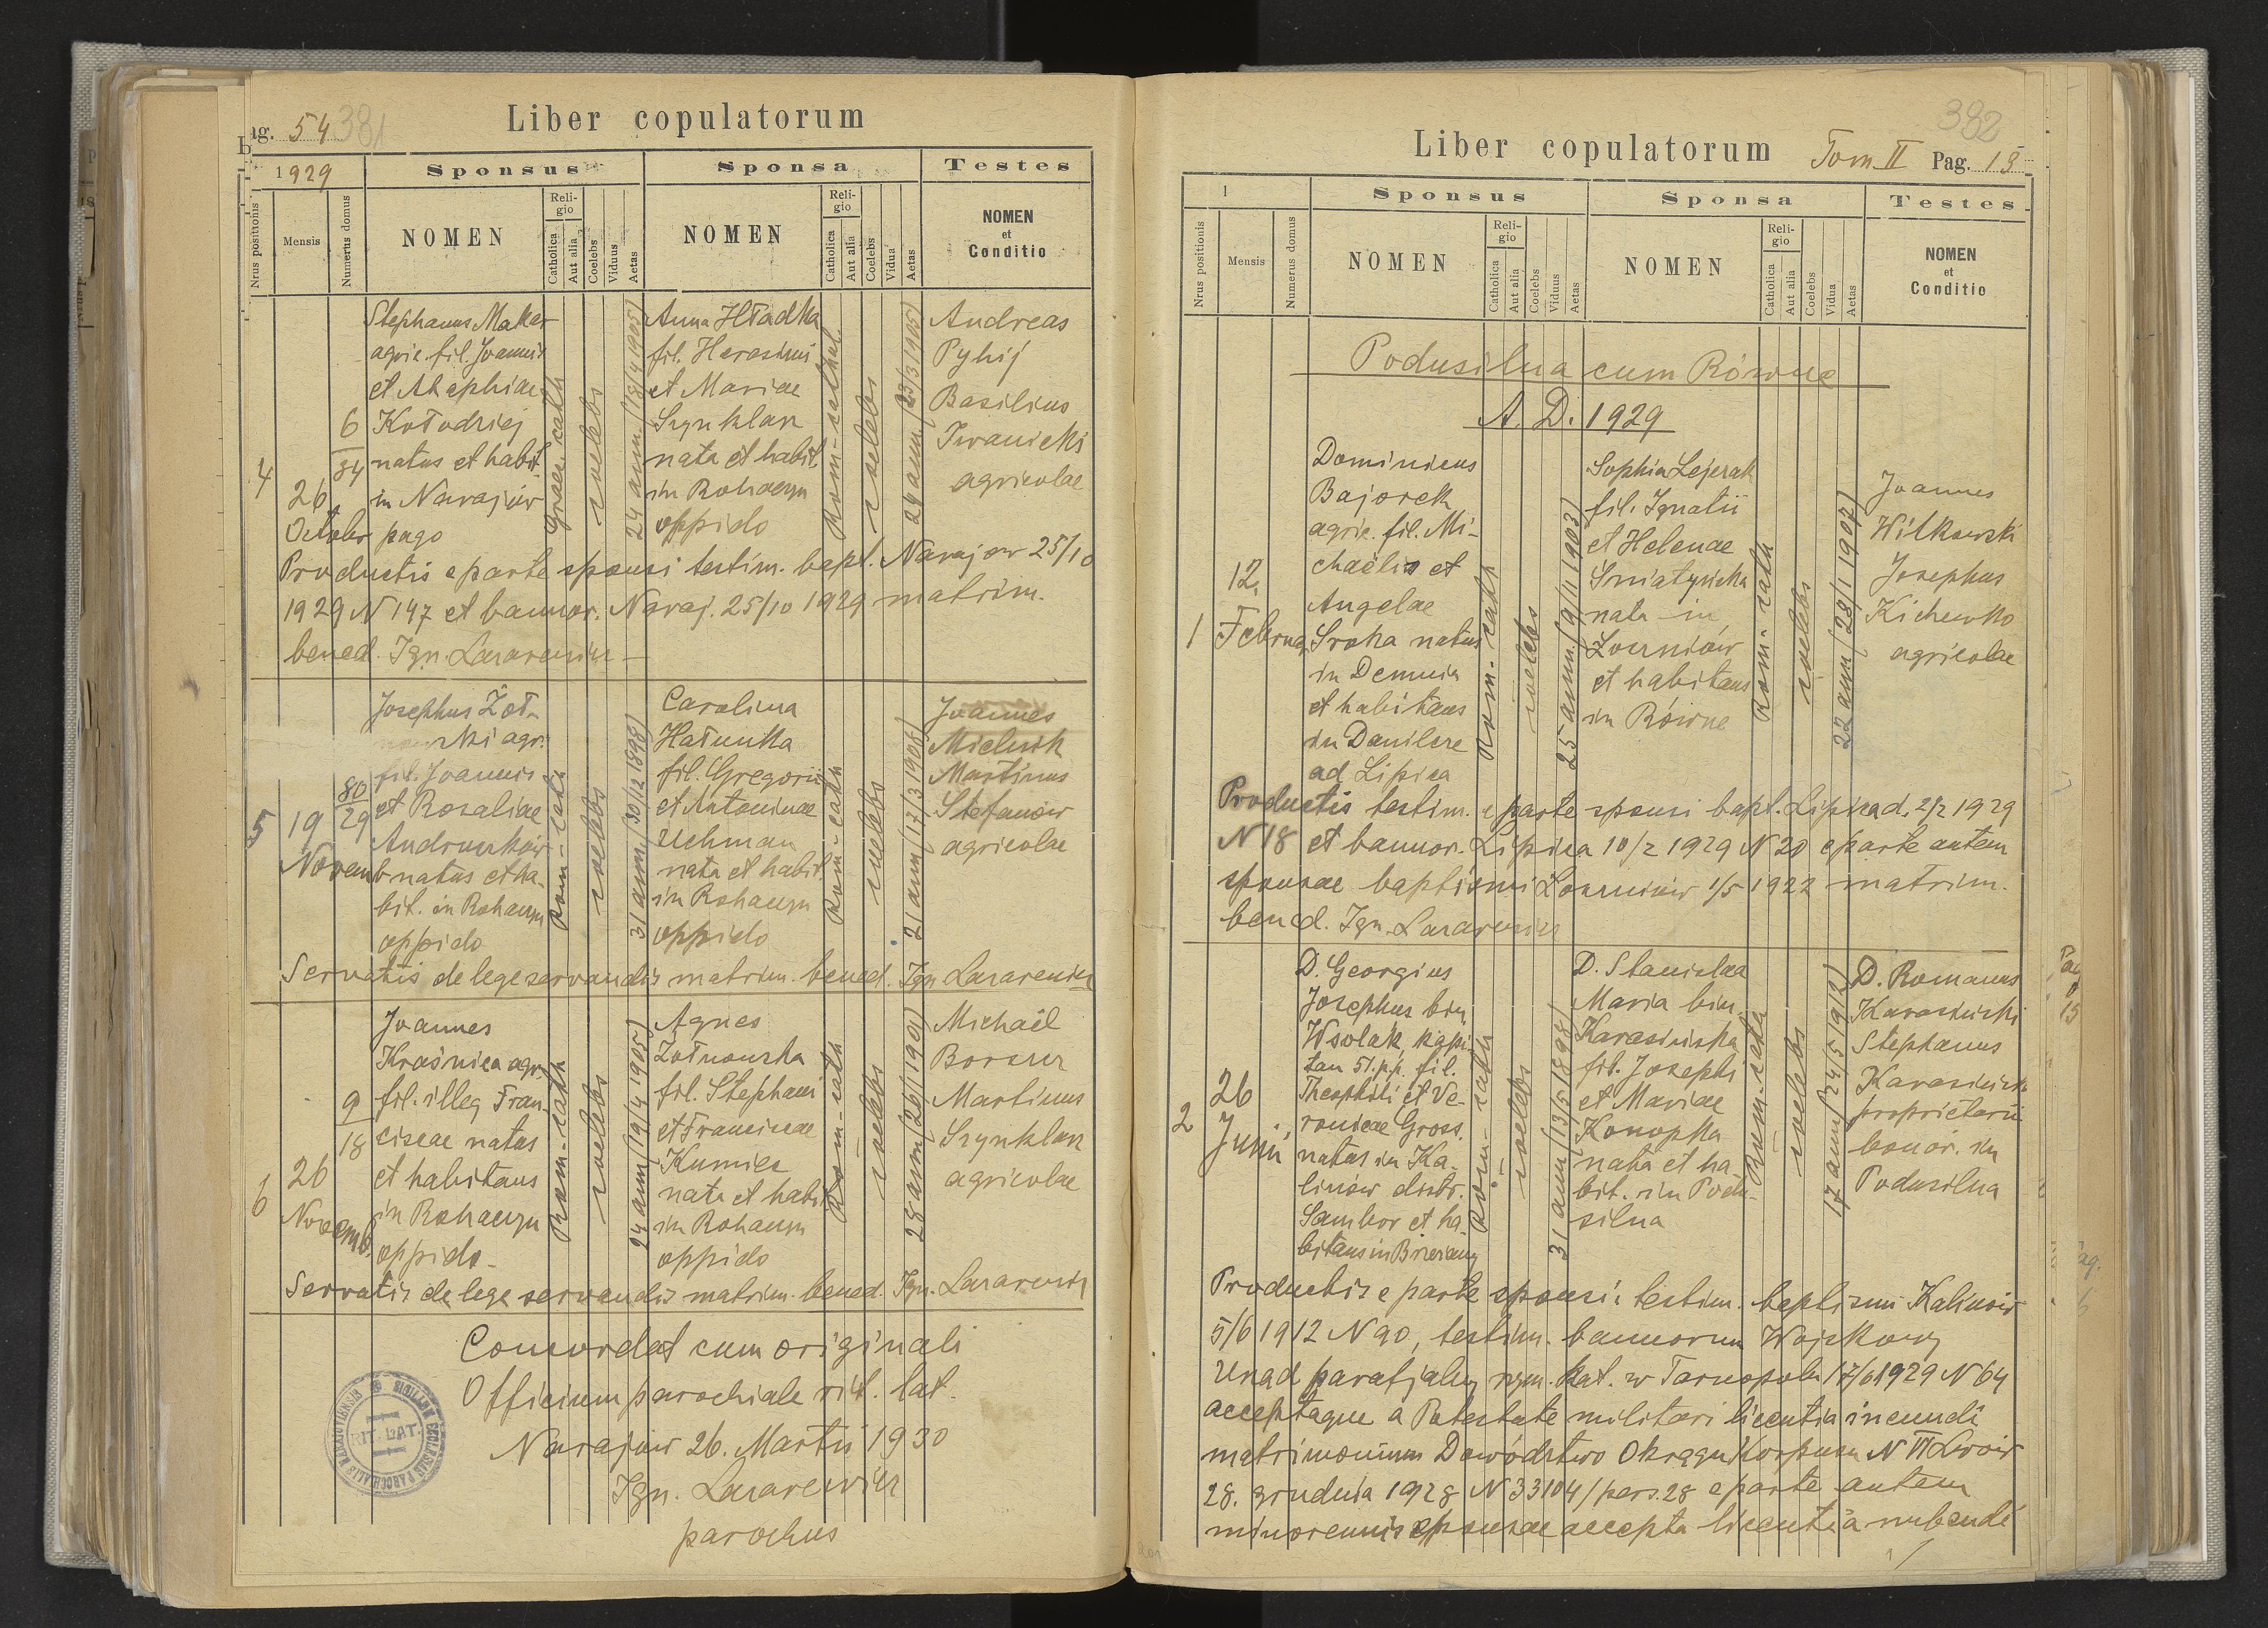 Pag. 54 381
Liber copulatorum
1929
Sponsus
Sponsa
Testes
Nrus positionis
Mensis
Numerus domus
NOMEN
Religio
Catholica
Aut alia
Coelebs
Viduus
Aetas
NOMEN
Religio
Catholica
Aut alia
Coelebs
Vidua
Aetas
NOMEN
et
Conditio
4
26
Octobr
6
34
Stephanus Maker
agric. fil. Joannis
et Akaphiae
Kołodziej
natus et habit.
in Narajów
pago
Graec. cath
coelebs
24 ann. (18/4 1905)
Anna Hładka
fil. Herasimi
et Mariae
Szynklar
nata et habit.
in Rohaczyn
oppido
Rom-cathol.
coelebs
24 ann (23/3 1905)
Andreas
Pyhij
Basilius
Iwanicki
agricolae
Productis e parte sponsi testim. bapt. Narajow 25/10
1929 N 147 et bannor. Naraj. 25/10 1929 matrim.
bened. Ign. Lazarewicz
5
19
Novemb
80
29
Josephus Żoł-
nowski agr.
fil. Joannis
et Rosaliae
Andruszków
natus et ha-
bit. in Rohaczyn
oppido
Rom-cath
coelebs
31 ann. (30/12 1898)
Carolina
Hałunka
fil. Gregorii
et Antoninae
Uchman
nata et habit.
in Rohaczyn
oppido
Rom-cath
coelebs
21 ann (17/3 1908)
Joannes
Mielnik
Martinus
Stefanow
agricolae
Servatis de lege servandis matrim. bened. Ign Lazarewicz
6
26
Novemb.
9
18
Joannes
Kraśnica agr.
fil. illeg Fran-
ciscae natus
et habitans
in Rohaczyn
oppido
Rom-cath
coelebs
24 ann (19/4 1905)
Agnes
Żołnowska
fil. Stephani
et Franciscae
Kumiec
nata et habit
in Rohaczyn
oppido
Rom-cath
coelebs
28 ann (26/1 1901)
Michaël
Borszcz
Martinus
Szynklar
agricolae
Servatis de lege servandis matrim. bened. Ign. Lazarewicz
Concordat cum originali
Officium parochiale rit. lat.
Narajów 26. Martii 1930
Ign. Lazarewicz
parochus
RIT. LAT.
382
Liber copulatorum
Tom II Pag. 13
1
Sponsus
Sponsa
Testes
Nrus positionis
Mensis
Numerus domus
NOMEN
Religio
Catholica
Aut alia
Coelebs
Viduus
Aetas
NOMEN
Religio
Catholica
Aut alia
Coelebs
Vidua
Aetas
NOMEN
et
Conditio
Podusilna cum Równe
A. D. 1929
1
12.
Februar.
Dominicus
Bajorek
agric. fil. Mi-
chaëlis et
Angelae
Sroka natus
in Demnia
et habitans
in Danilcze
ad Lipica
Rom-cath
coelebs
25 ann. (9/11 1903)
Sophia Lejerak
fil. Ignatii
et Helenae
Śniatyńska
nata in
Łoszniów
et habitans
in Równe
Rom-cath
coelebs
22 ann (28/1 1907)
Joannes
Witkowski
Josephus
Kichewko
agricolae
Productis testim. e parte sponsi bapt. Lipica d. 2/2 1929
N 18 et bannor. Lipica 10/2 1929 N 20 e parte autem
sponsae baptismi Łoszniów 1/5 1922 matrim.
bened. Ign. Lazarewicz
2
26
Junii
D. Georgius
Josephus bin.
Wsolak, kapi-
tan 51. p.p. fil.
Theophili et Ve-
ronicae Gross.
natus in Ka-
linów distr.
Sambor et ha-
bitans in Brzeżany
Rom-cath
coelebs
31 ann (13/5 1898)
D. Stanislaa
Maria bin.
Karasińska
fil. Josephi
et Mariae
Konopka
nata et ha-
bit. in Podu-
silna
Rom-cath
coelebs
17 ann (24/5 1912)
D. Romanus
Karasiński
Stephanus
Karasiński
proprietarii
bonor. in
Podusilna
Productis e parte sponsi: testim. baptismi Kalinów
5/6 1912 N 90, testim. bannorum Wojskowy
Urząd parafjalny rzym. kat. w Tarnopolu 17/6 1929 N 64
acceptaque a Potestate militari licentia ineundi
matrimonium Dowództwo Okręgu Korpusu N VI Lwów
28. grudnia 1928 N 33104/pers. 28 e parte autem
minorennis sponsae accepta licentia nubendi